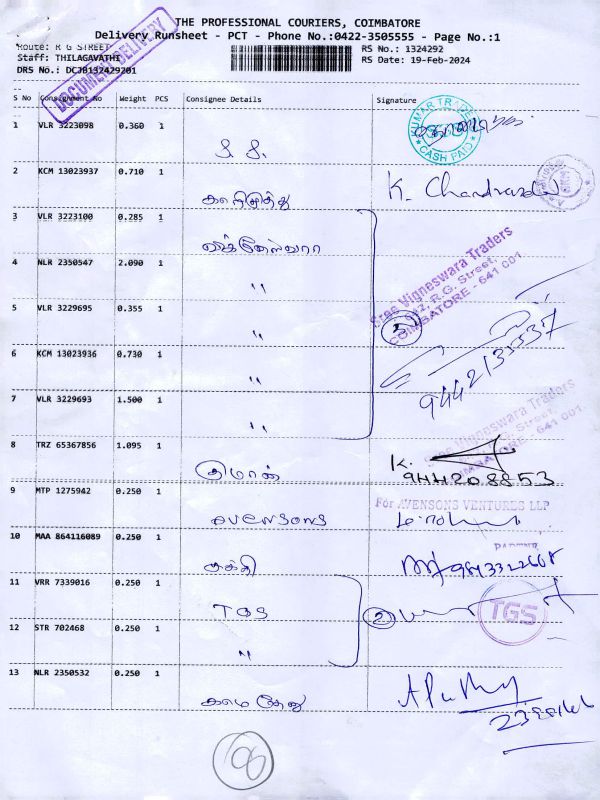 THE PROFESSIONAL COURIERS, COIMBATORE
Delivery Runsheet - PCT - Phone No.:0422-3505555 - Page No.:1
Route: R G STREET
RS No.: 1324292
Staff: THILAGAVATHI
RS Date: 19-Feb-2024
DRS No.: DCJB132429201
DOCUMENT DELIVERY
S No Consignment No Weight PCS Consignee Details Signature
1 VLR 3223098 0.360 1 S. S.
KUMAR TRADE
CASH PAID
2 KCM 13023937 0.710 1 K.
3 VLR 3223100 0.285 1
Sree Vigneswara Traders
R.G. Street,
COIMBATORE - 641 001
4 NLR 2350547 2.090 1 "
5 VLR 3229695 0.355 1 "
5
6 KCM 13023936 0.730 1 "
7 VLR 3229693 1.500 1 "
Vigneswara Traders
Street,
COIMBATORE - 641 001
8 TRZ 65367856 1.095 1 K.
9 MTP 1275942 0.250 1 avensons
For AVENSONS VENTURES LLP
PARTNER
10 MAA 864116089 0.250 1 சக்தி
11 VRR 7339016 0.250 1 TGS
2
TGS
12 STR 702468 0.250 1 "
13 NLR 2350532 0.250 1